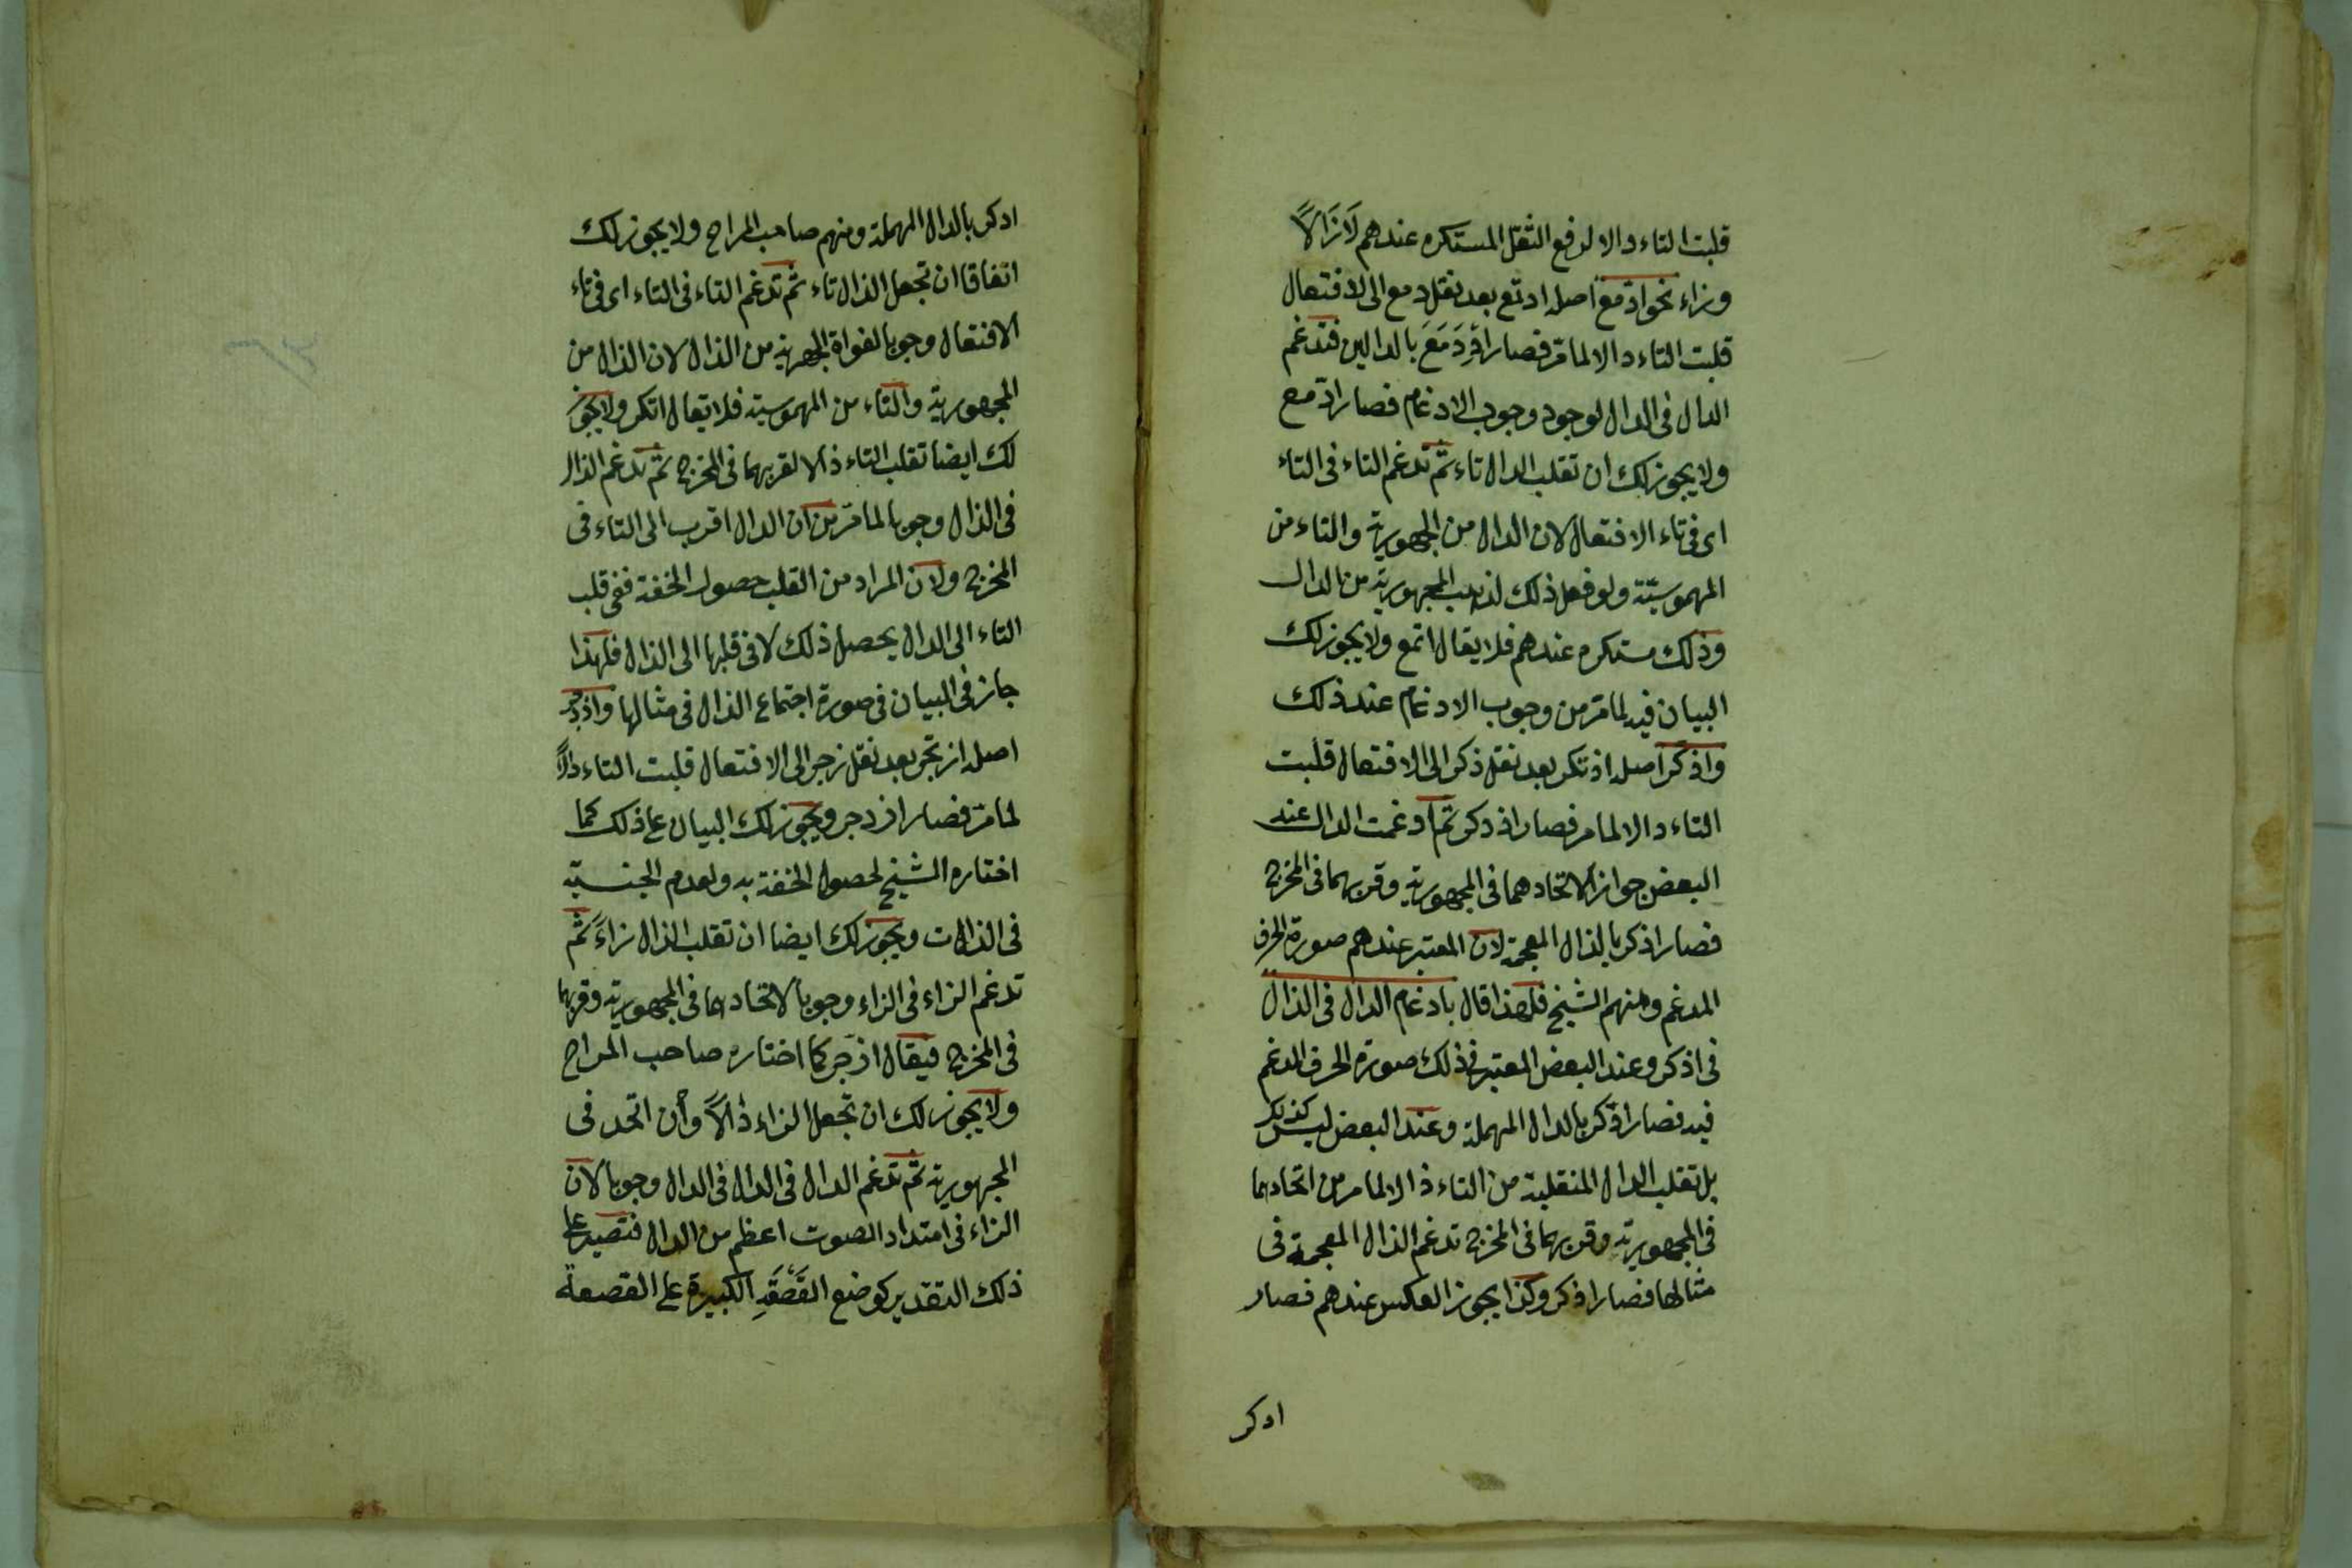 قلبت التاء دالا لدفع الثقل المستكره عندهم لَازَالًا
وزاء نحو ادّمع اصله ادتمع بعد نقل دمع الى الافتعال
قلبت التاء دالا لما مرّ فصار اِدْدَمَعَ بالدالين فتدغم
الدال فى الدال لوجود وجوب الادغام فصار ادّمع
ولا يجوز لك ان تقلب الدال تاء ثمّ تدغم التاء فى التاء
اى فى تاء الافتعال لان الدال من المجهورية والتاء من
المهموسيّة ولو فعل ذلك لذهب المجهورية من الدال
وذلك مستكره عندهم فلا يقال اتمع ولا يجوز لك
البيان فيه لما مرّ من وجوب الادغام عند ذلك
واذكر اصله اذتكر بعد نقل ذكر الى الافتعال قلبت
التاء دالا لما مر فصار اذدكر ثم ادغمت الدال عند
البعض جوازا لاتحادهما فى المجهورية وقربهما فى المخرج
فصار اذكر بالذال المعجمة لان المعتبر عندهم صورة الحرف
المدغم ومنهم الشيخ فلهذا قال بادغام الدال فى الذال
فى اذكر وعند البعض المعتبر فى ذلك صورة الحرف المدغم
فيه فصار ادّكر بالدال المهملة وعند البعض ليس كذلك
بل تقلب الدال المنقلبة من التاء ذالا لما مر من اتحادهما
فى المجهورية وقربهما فى المخرج تدغم الذال المعجمة فى
مثالها فصار اذكر وكذا يجوز العكس عندهم فصار
ادكر
ادكر بالدال المهملة ومنهم صاحب المراح ولا يجوز لك
اتفاقا ان تجعل الذال تاء ثمّ تدغم التاء فى التاء اى فى تاء
الافتعال وجوبا لفواة الجهرية من الذال لان الذال من
المجهورية والتاء من المهموسية فلا يقال اتكر ولا يجوز
لك ايضا تقلب التاء ذالا لقربهما فى المخرج ثمّ تدغم الذال
فى الذال وجوبا لما مرّ من ان الدال اقرب الى التاء فى
المخرج ولان المراد من القلب حصول الخفة ففى قلب
التاء الى الدال يحصل ذلك لا فى قلبها الى الذال فلهذا
جاز فى البيان فى صورة اجتماع الذال فى مثالها وازدجر
اصله ازتجر بعد نقل زجر الى الافتعال قلبت التاء دالًا
لما مرّ فصار ازدجر ويجوز لك البيان على ذلك كما
اختاره الشيخ لحصول الخفة به ولعدم الجنسية
فى الذات ويجوز لك ايضا ان تقلب الدال زاءً ثمّ
تدغم الزاء فى الزاء وجوبا لاتحادهما فى المجهورية وقربهما
فى المخرج فيقال ازّجر كما اختاره صاحب المراح
ولا يجوز لك ان تجعل الزاء دالًا وأن اتحد فى
المجهورية ثمّ تدغم الدال فى الدال فى الدال وجوبا لان
الزاء فى امتداد الصوت اعظم من الدال فتصير على
ذلك التقدير كوضع القَصْعَةِ الكبيرة على القصعة